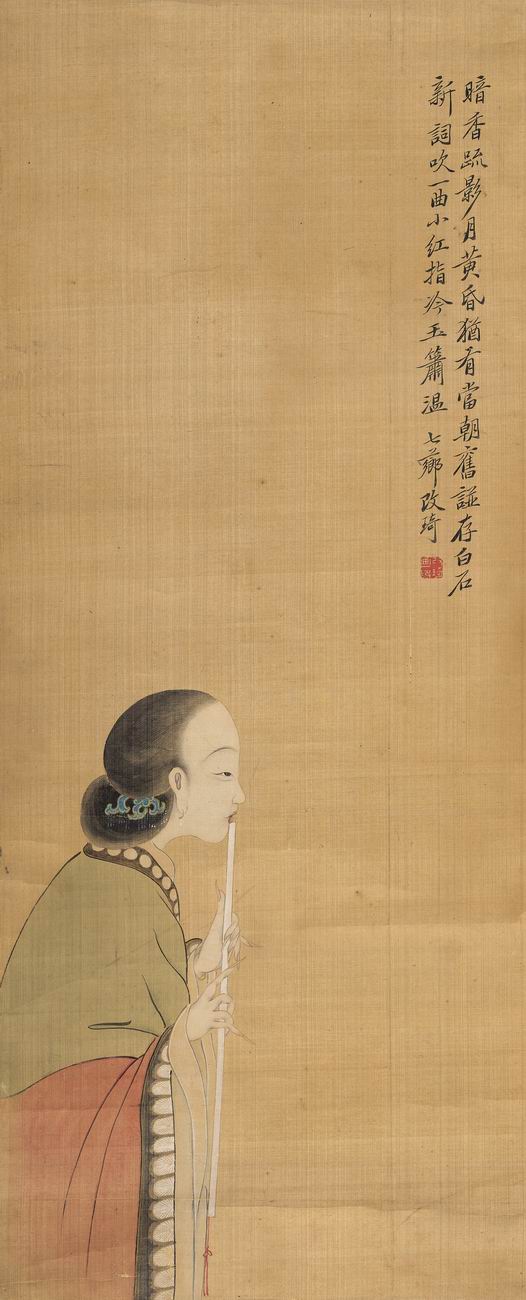 暗香疏影月黄昏猶有當朝舊譜存白石
新詞吹一曲小紅指冷玉簫温 七薌改琦